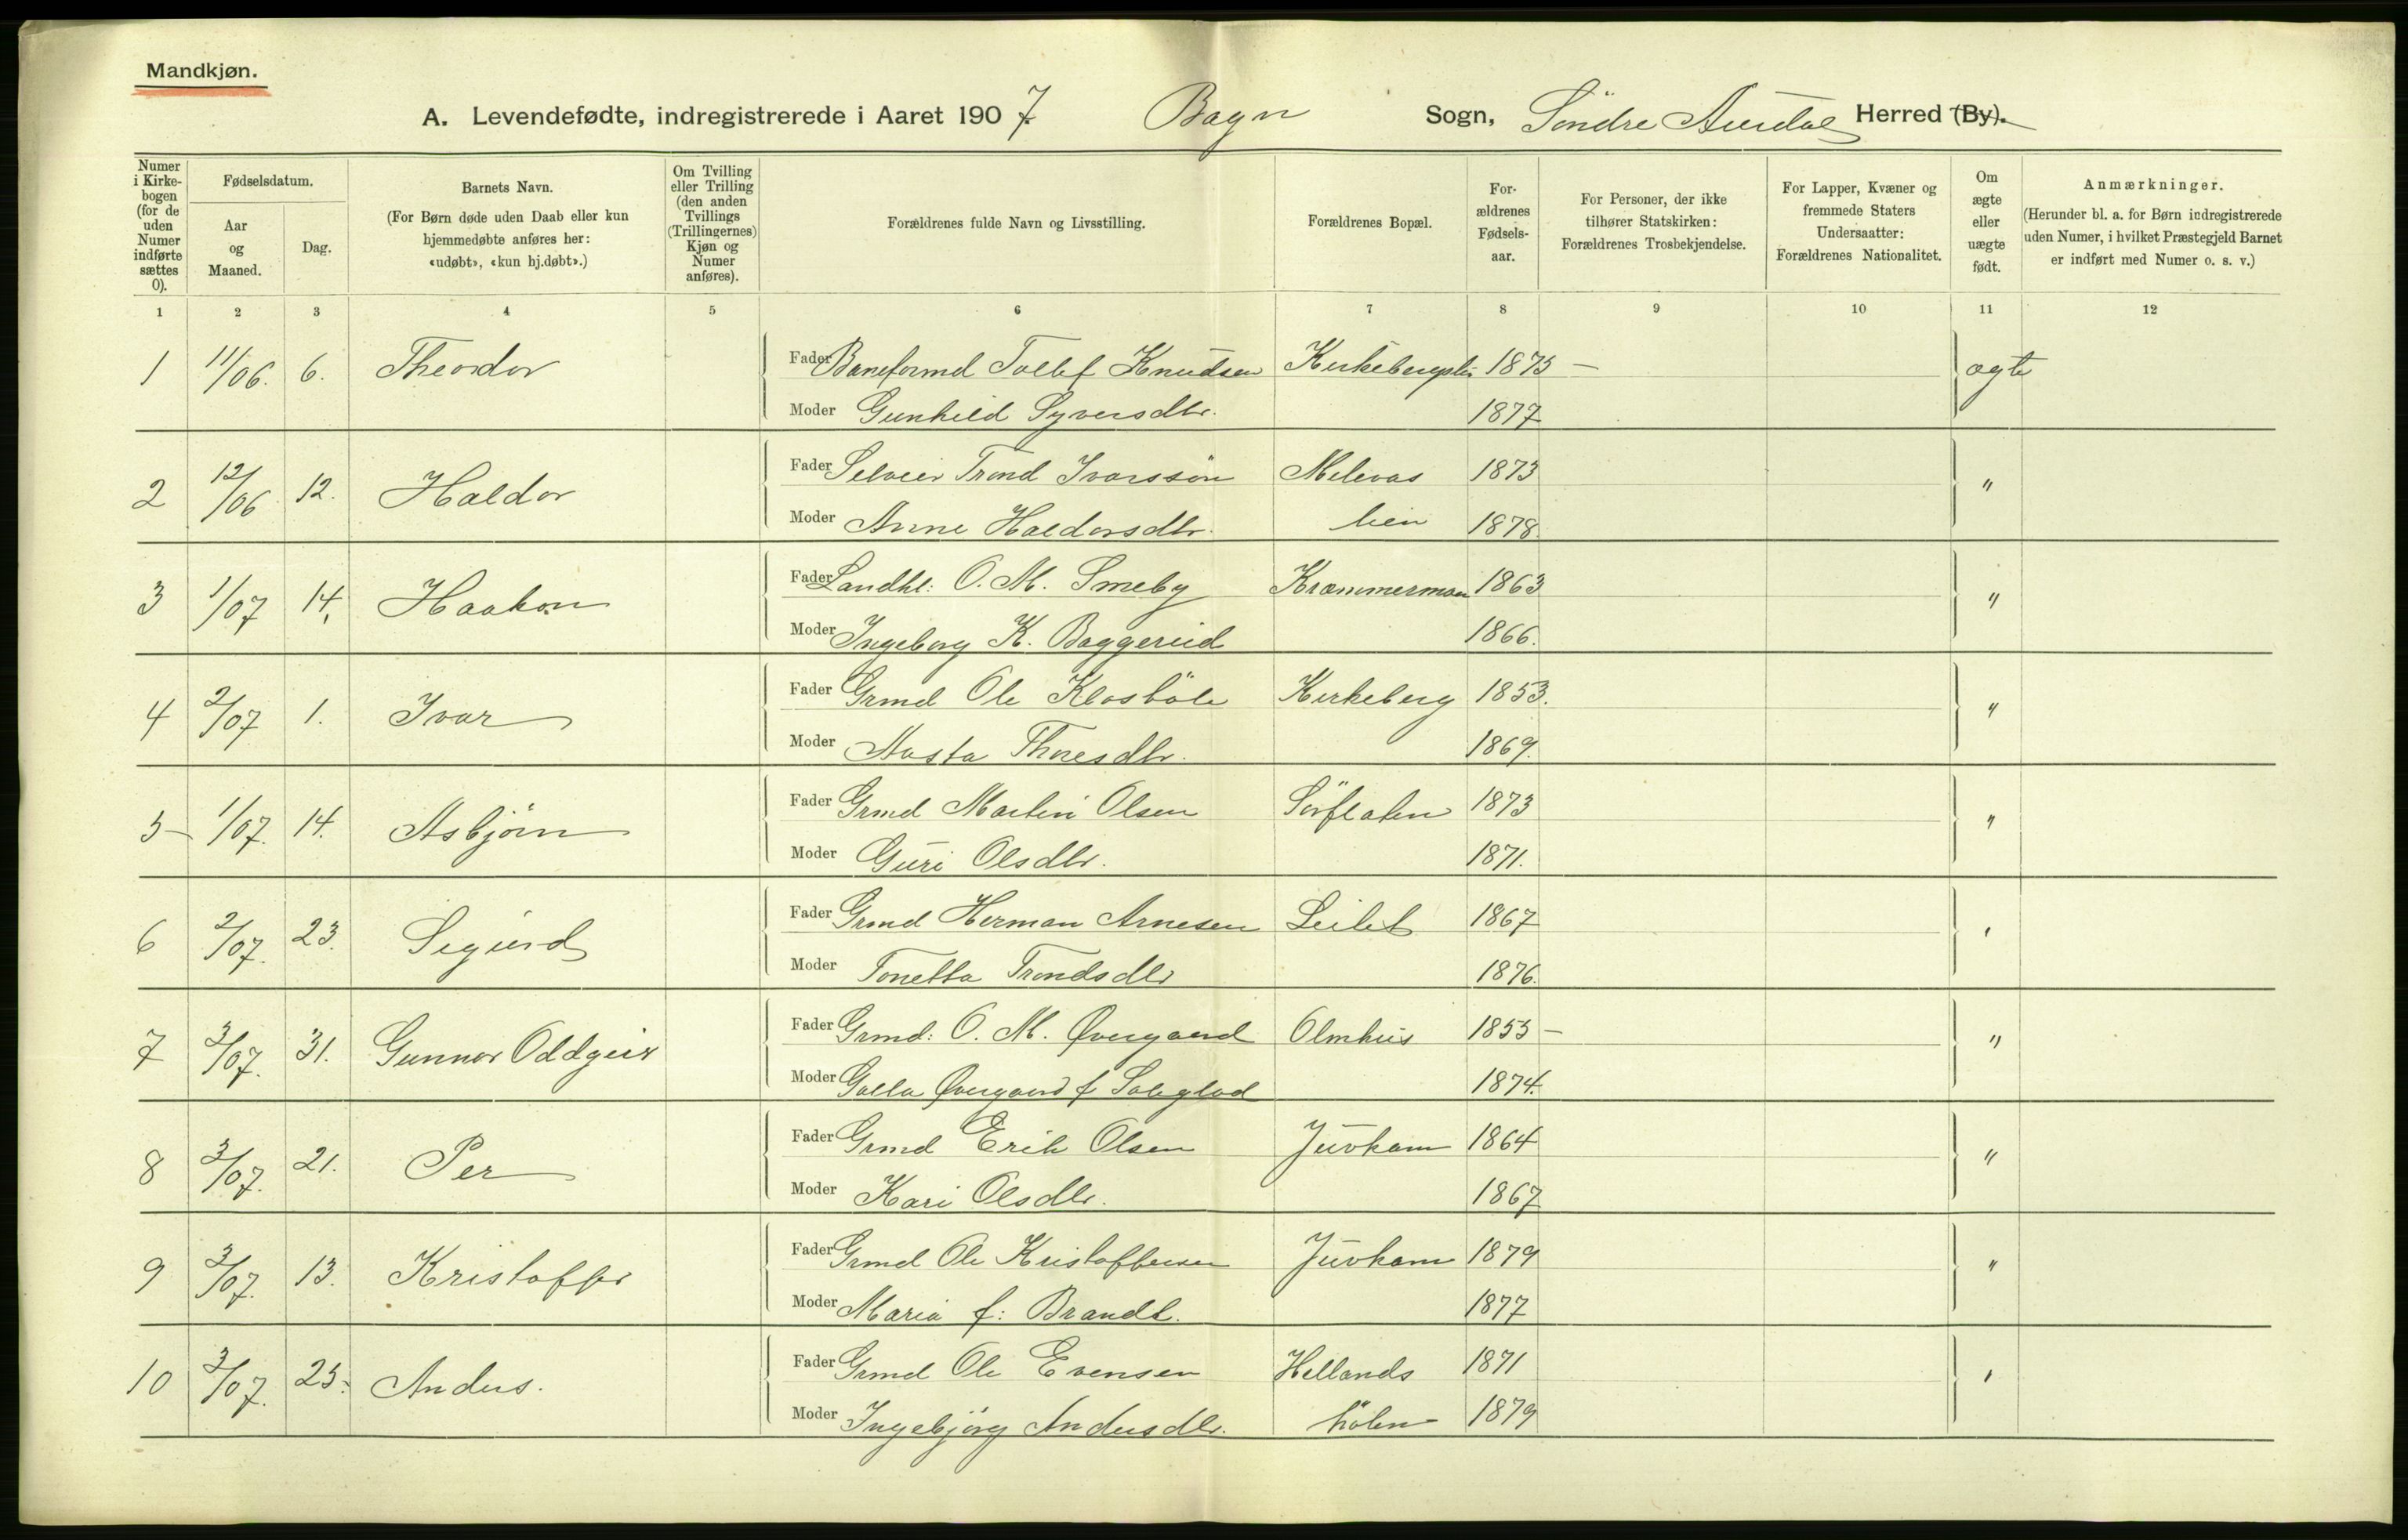 Mandkjøn.
A. Levendefødte, indregistrerede i Aaret 1907 Bagn Sogn, Söndre Aurdal Herred (By).
Numer i Kirkebogen (for de uden Numer indførte sættes 0).
Fødselsdatum.
Aar og Maaned.
Dag.
Barnets Navn.
(For Børn døde uden Daab eller kun
hjemmedøbte anføres her:
«udøbt», «kun hj.døbt».)
Om Tvilling
eller Trilling
(den anden
Tvillings
(Trillingernes)
Kjøn og
Numer
anføres).
Forældrenes fulde Navn og Livsstilling.
Forældrenes Bopæl.
For-
ældrenes
Fødsels-
aar.
For Personer, der ikke
tilhører Statskirken:
Forældrenes Trosbekjendelse.
For Lapper, Kvæner og
fremmede Staters
Undersaatter:
Forældrenes Nationalitet.
Om
ægte
eller
uægte
født.
Anmærkninger.
(Herunder bl. a. for Børn indregistrerede
uden Numer, i hvilket Præstegjeld Barnet
er indført med Numer o. s. v.)
1 2 3 4 5 6 7 8 9 10 11 12
1 11/06. 6. Theodor Fader Baneformd Tollef Knudsen 1875 - ægte
Moder Gunhild Syversdtr. 1877
2 12/06 12. Haldor Fader Selveier Trond Ivarssön Melevas 1873 "
Moder Anne Haldorsdtr. lien 1878.
3 1/07 14. Haakon Fader Landhl: O. M. Smeby Krammermoen 1863 "
Moder Ingeborg K. Baggerud 1866.
4 2/07 1. Ivar Fader Grmd Ole Klosböle Kirkeberg 1853. "
Moder Aasta Thoresdtr. 1869.
5 1/07. 14. Asbjörn Fader Grmd Martin Olsen Sörflaten 1873 "
Moder Guri Olsdtr. 1871.
6 2/07. 23. Sigurd Fader Grmd Herman Arnesen Leilet 1867 "
Moder Tonetta Trondsdtr 1876.
7 3/07. 31. Gunnar Oddgeir Fader Grmd: O. M. Øvergaard Olmhus 1855 - "
Moder Galla Øvergaard f Soleglad 1874.
8 3/07. 21. Per Fader Grmd Erik Olsen Juvkam 1864 "
Moder Kari Olsdtr. 1867
9 3/07. 13. Kristoffer Fader Grmd Ole Kristoffersen Juvkam 1879 "
Moder Maria f: Brandt. 1877
10 3/07. 25. Anders. Fader Grmd Ole Evensen Hellands 1871 "
Moder Ingebjörg Andersdtr. hölen 1879